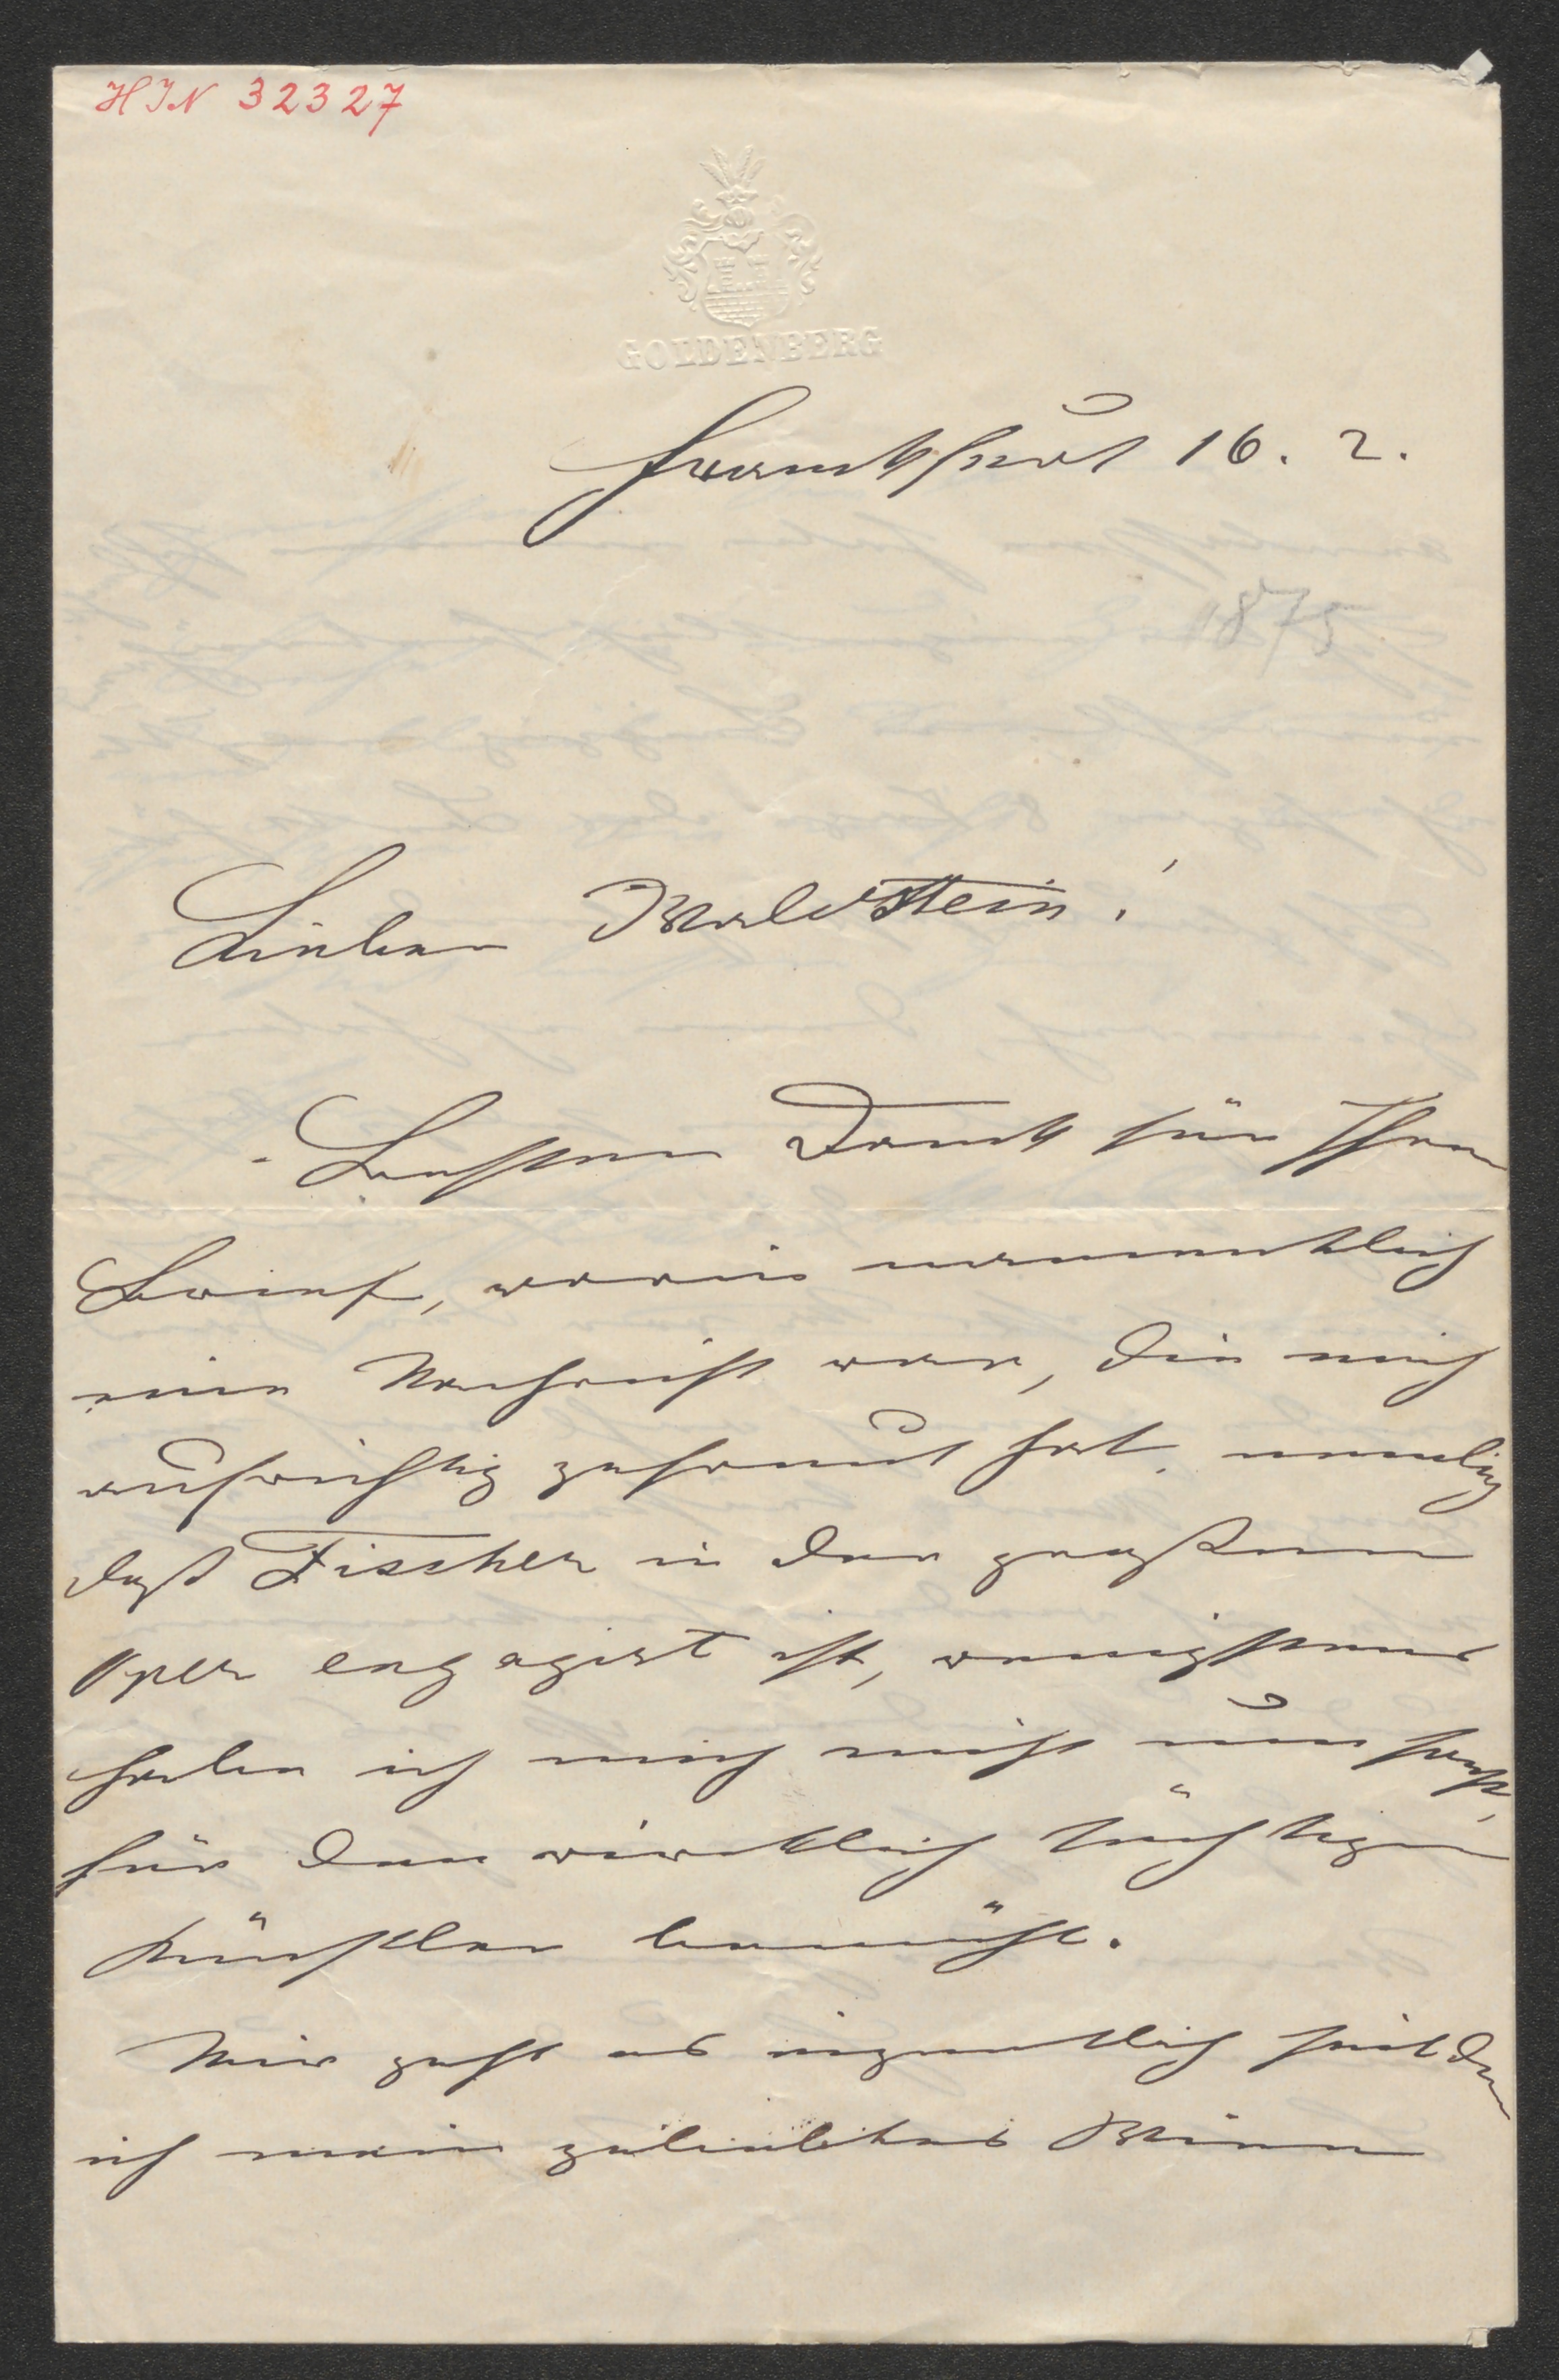 HIN 32327
GOLDENBERG
Frankfurt 16. 2.
1875
Lieber Waldstein!
Besten Dank für Ihren
Brief, worin namentlich
eine Nachricht war, die mich
aufrichtig gefreut hat, nemlich
daß Fischer in der großen
Oper engagirt ist, wenigstens
habe ich mich nicht umsonst,
für den wirklich tüchtigen
Künstler bemüht.
Mir geht es eigentlich seitdem
ich mein geliebtes Wien